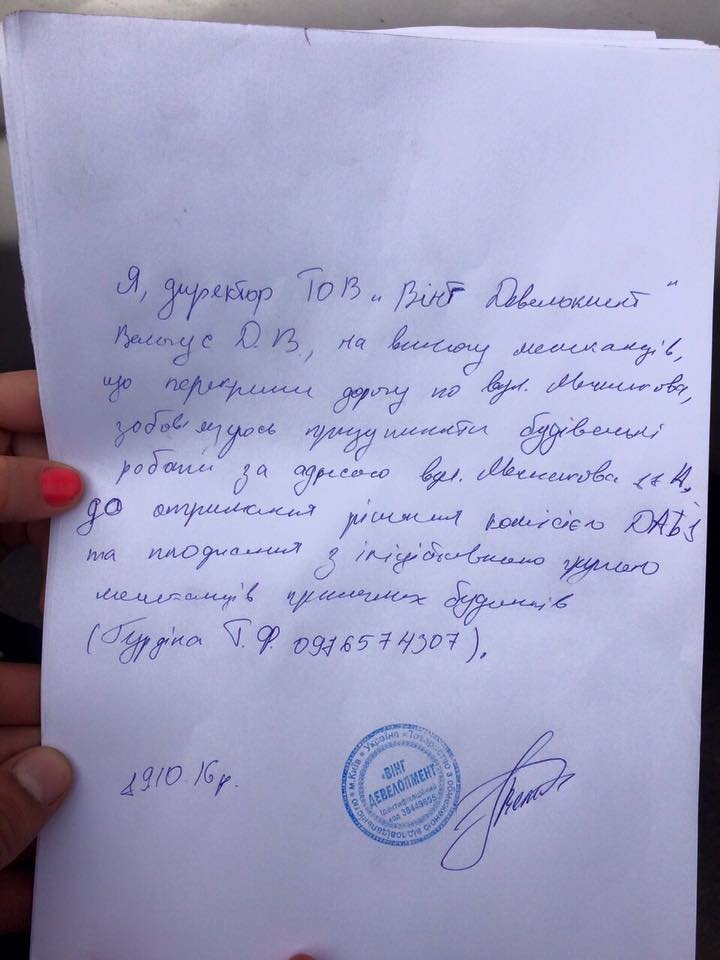 Я, директор ТОВ „Вінг Девелопмент"
Д.В., на вимогу мешканців,
що перекрили дорогу по вул. Мечникова,
зобов'язуюсь призупинити будівельні
роботи за адресою вул. Мечникова
до отримання рішення комісією ДАБІ
та погодження з ініціативною групою
мешканців прилеглих будинків
(Гурдіна Т.Ф. 0976574307).
1910.16р.
Україна * Товариство з обмеженою відповідальністю * м.Київ *
"ВІНГ
ДЕВЕЛОПМЕНТ"
Ідентифікаційний
код